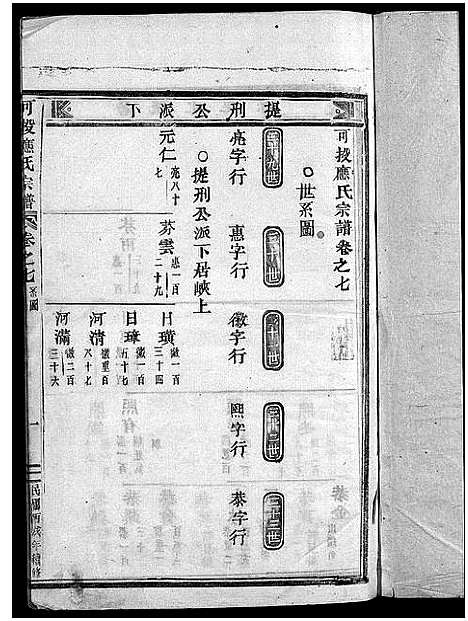 提刑公派下
可投應氏宗譜卷之七
世系圖
二十九世
三十世
三十一世
三十二世
三十三世
亮字行
惠字行
徽字行
熙字行
恭字行
提刑公派下居峽上
元仁 亮八十七
芬雲 惠一百二十九
日璜 徽一百三十四
日璋 徽一百五十七
河清 徽壹百八十七
河滿 徽二百三十六
可投應氏宗譜
卷之七
系圖
一